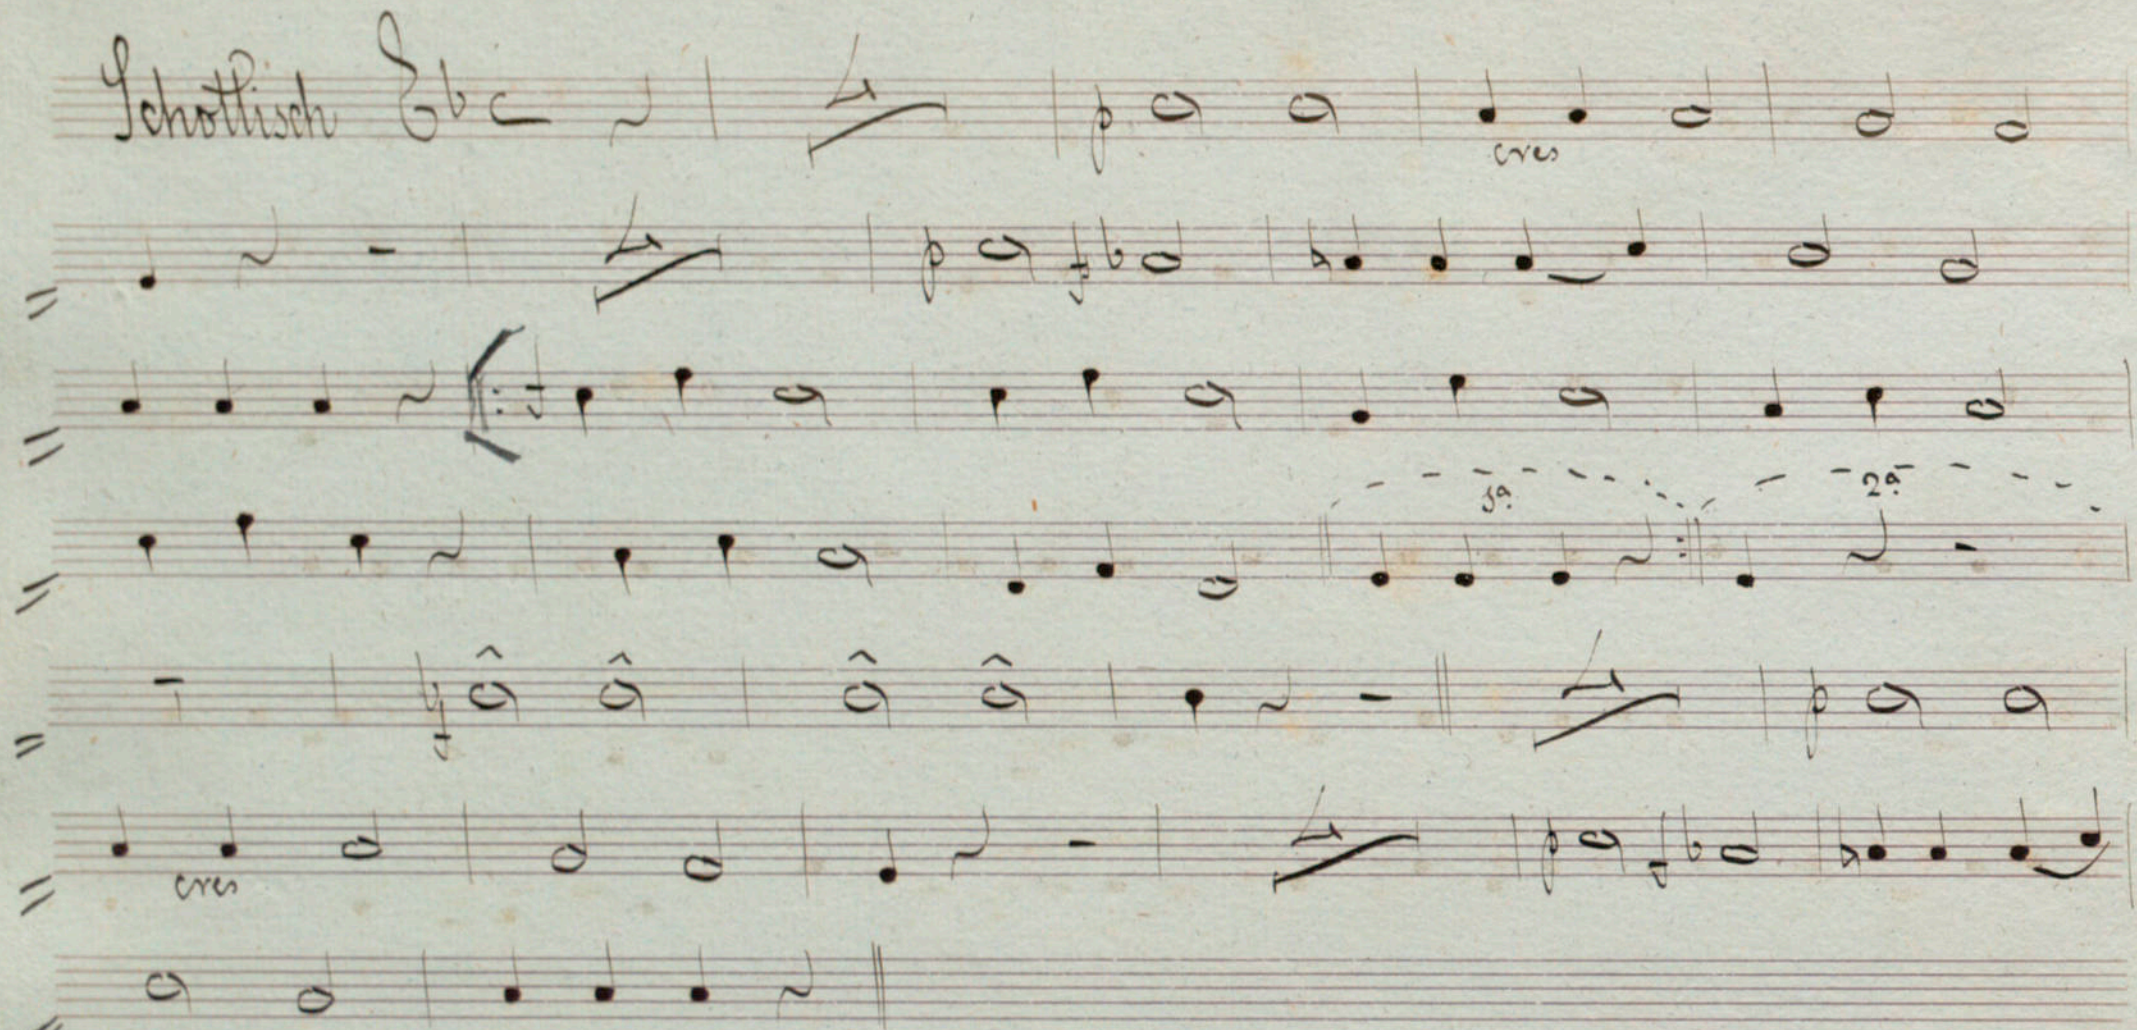 Schottisch Eb C
4
p
cres
4
p f
f
1ª 2ª
f
4
p
cres
4
p f